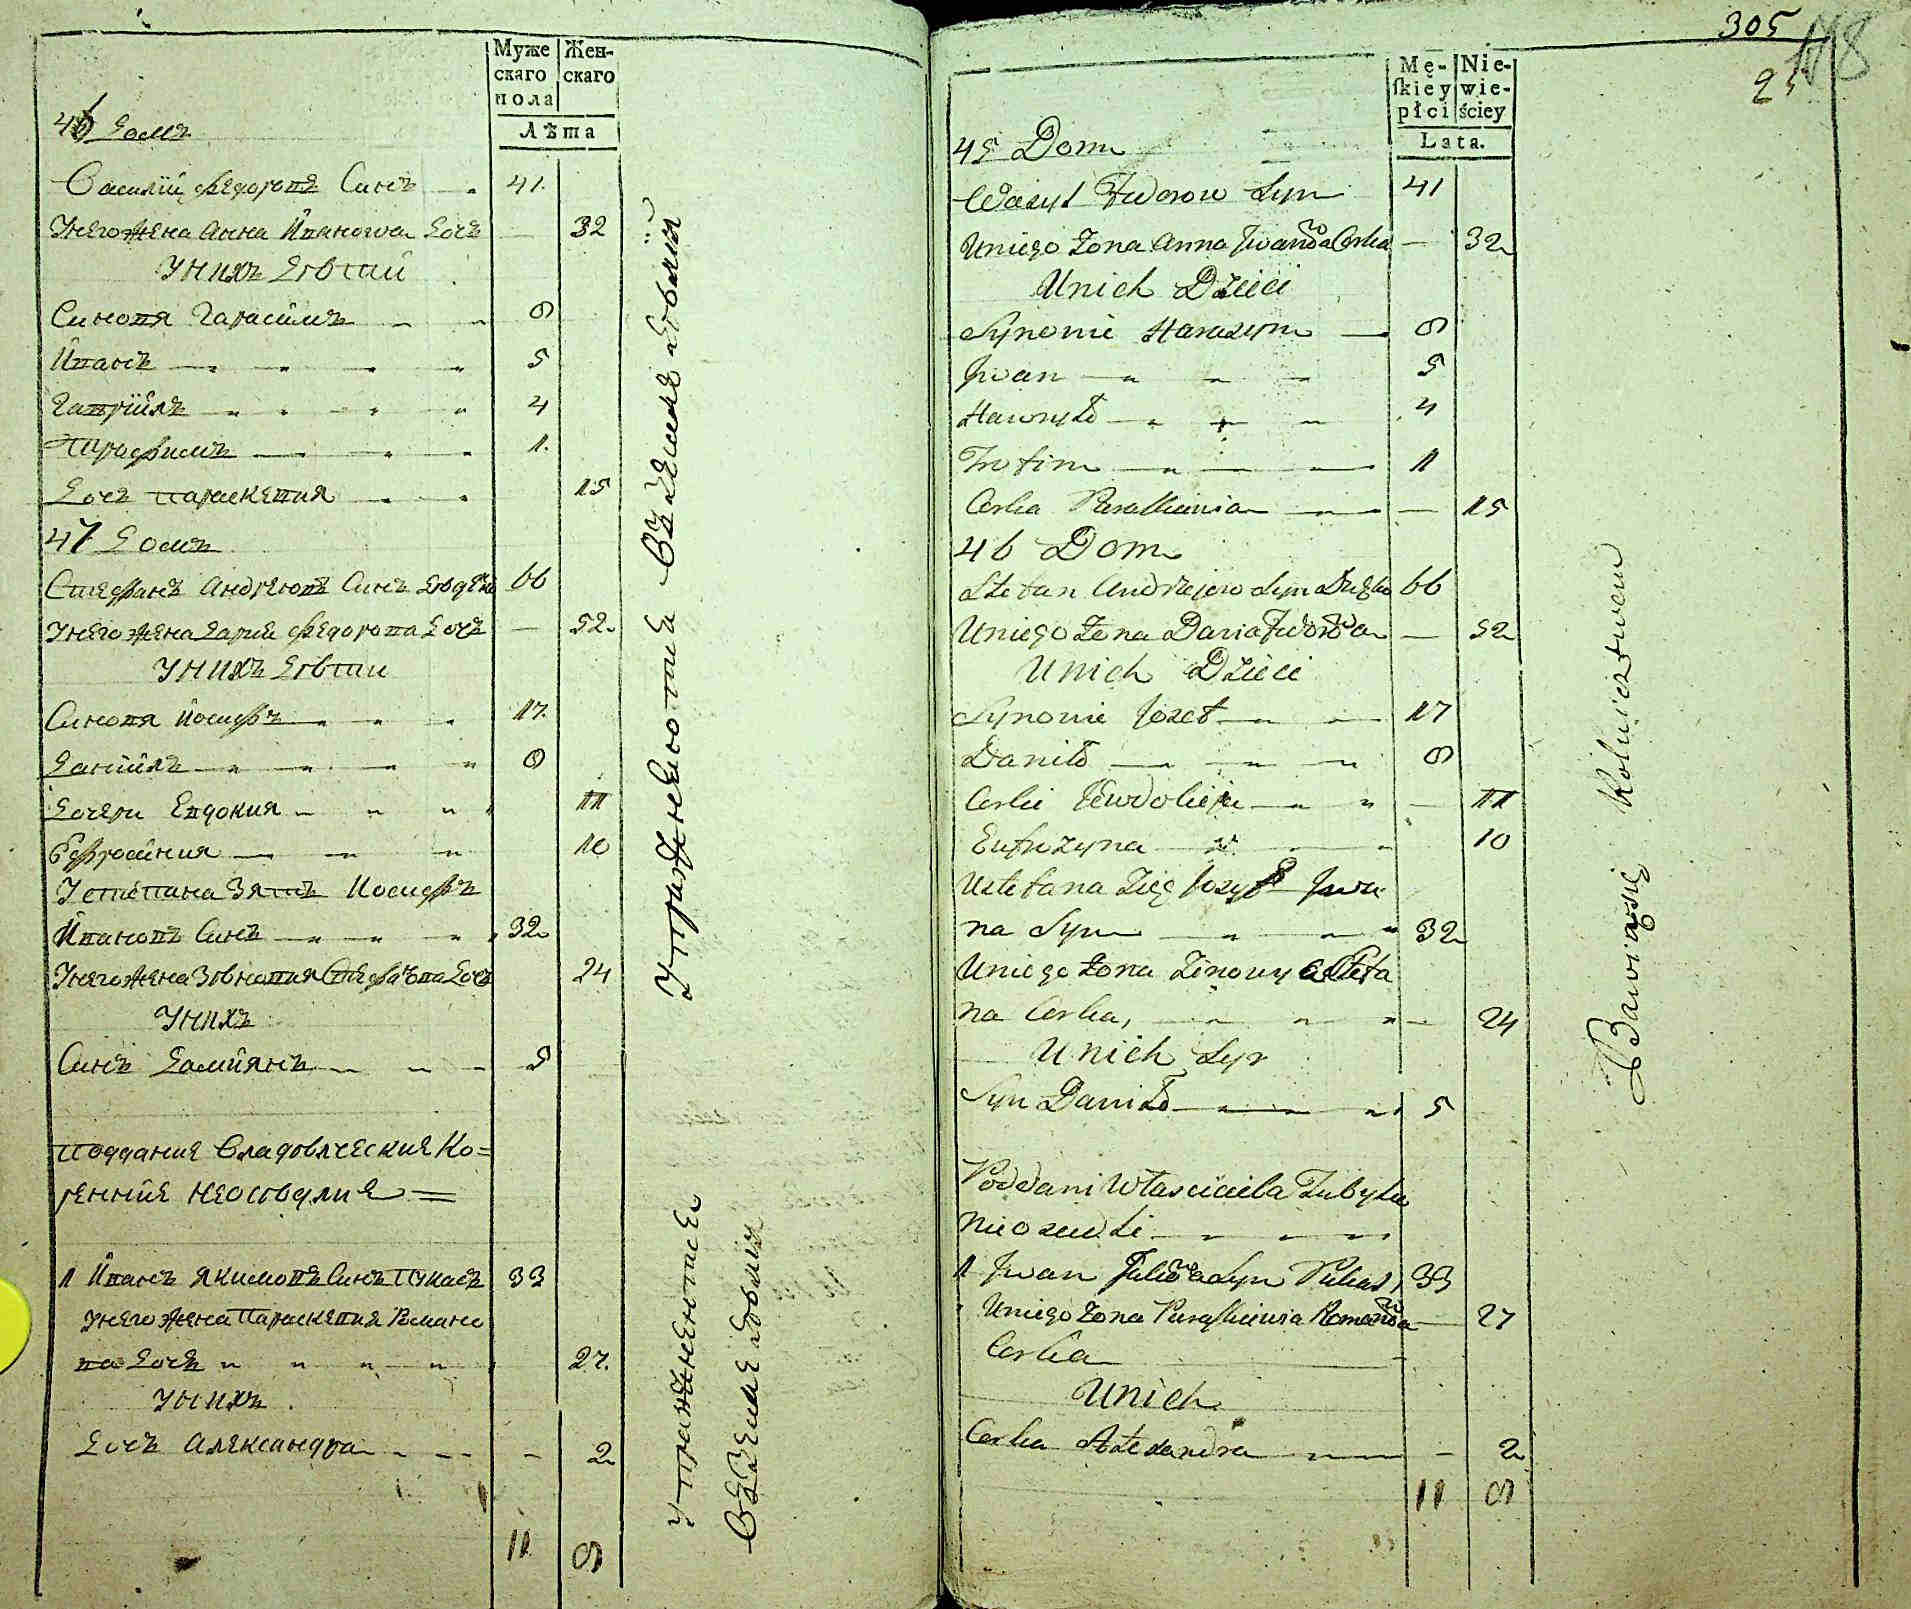 Муже
скаго
пола
Жен-
скаго
Лѣта
46 Домъ
Василій Федоровъ Синъ 41.
Унего жена Анна Иванова Дочь — 32
Унихъ Дѣти
Синовя Гарасимъ 8
Иванъ 5
Гавріилъ 4
Трофимъ 1.
Дочь Параскевия 15
47 Домъ
Стефанъ Андреювъ Синъ 66
Унего жена Дария Федорова Дочь — 52
Унихъ Дѣти
Синовя Иосифъ 17.
Даніилъ 8
Дочери Евдокия 11
Ефросиния 10
У Степана Зять Иосифъ
Ивановъ Синъ 32
Унего жена Зѣновия Стефанова Дочь 24
Унихъ
Синъ Даміянъ 5
Поддание Владѣлческия Ко=
ренніе неосѣдлие =
1 Иванъ Якимовъ Синъ Пукасъ 33
Унего жена Параскевия Романо
ва Дочь 27.
Унихъ
Дочь Александра - 2
11 8
Упражнѣютца Вѣ Земле дѣлии
Упражненютце
Вѣ Земле дѣлии
305
25
Mę-
skiey
płci
Nie-
wie-
ściey
Lata.
45 Dom
Wasyl Fedorow Syn 41
Uniego Zona Anna Jwanowa Corka — 32
Unich Dzieci
Synowie Harasym 8
Jwan 5
Hawryło 4
Trofim 1
Corka Paraskiewia — 15
46 Dom
Stefan Andrzejow Syn 66
Uniego Zona Daria Fedorowa — 52
Unich Dzieci
Synowie Jozef 17
Daniło 8
Corki Jewdokija — 11
Eufrozyna 10
Ustefana Zięc Jozyf Jwa
na Syn 32
Uniego Zona Zinowya Stefa
na Corka, — 24
Unich Syn
Syn Daniło 5
Poddani Własciciela Zubyła
Nieosiedli
1 Jwan Syn Pukas, 33
Uniego Zona Paraskiewia Romanowa — 27
Corka
Unich
Corka Alexandra - 2
11 8
Bawią się Rolnictwem